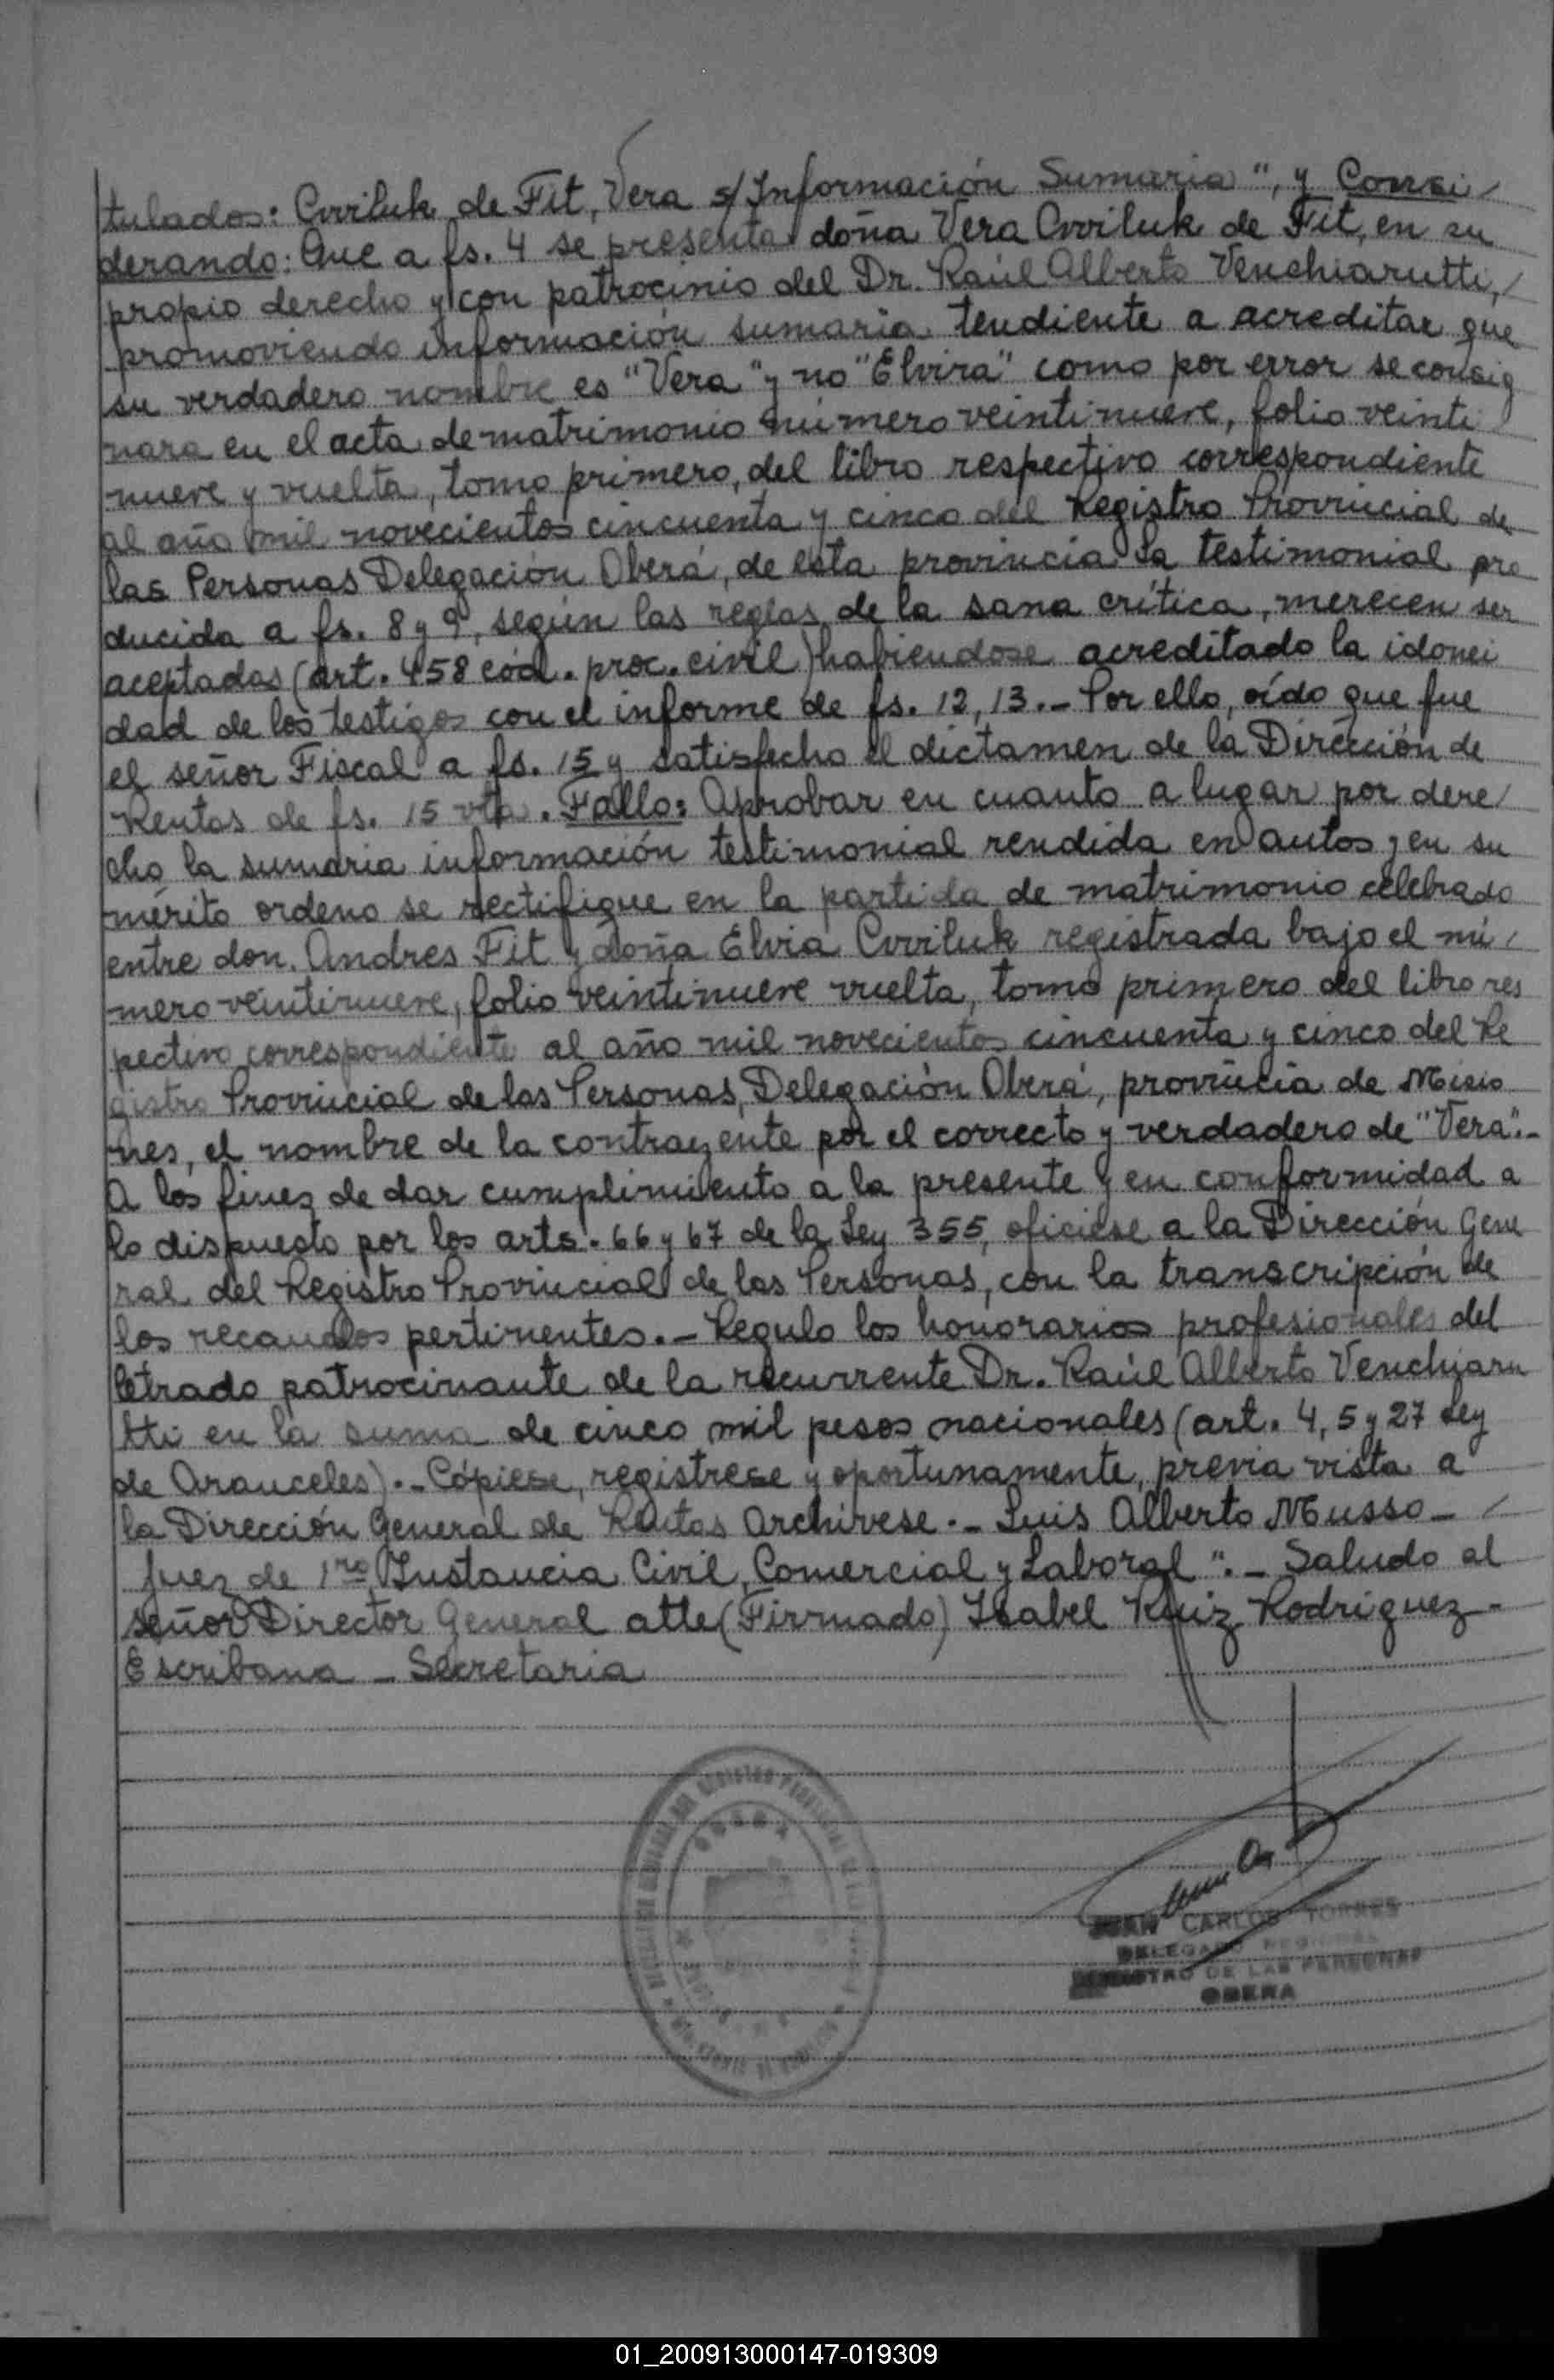 tulados: Cvriluk de Fit, Vera s/Información Sumaria", y Consi/
derando: Que a fs. 4 se presenta doña Vera Cvriluk de Fit, en su
propio derecho y con patrocinio del Dr. Raúl Alberto Venchiarutti,/
promoviendo información sumaria tendiente a acreditar que
su verdadero nombre es "Vera" y no "Elvira" como por error se consig
nara en el acta de matrimonio número veintinueve, folio veinti
nueve y vuelta, tomo primero, del libro respectivo correspondiente
al año mil novecientos cincuenta y cinco del Registro Provincial de
las Personas Delegación Oberá, de esta provincia La testimonial pro
ducida a fs. 8 y 9, según las reglas de la sana crítica, merecen ser
aceptadas (art. 458 cód. proc. civil) habiendose acreditado la idonei
dad de los testigos con el informe de fs. 12, 13.- Por ello, oído que fue
el señor Fiscal a fs. 15 y satisfecho el dictamen de la Dirección de
Rentas de fs. 15 vta. Fallo: Aprobar en cuanto a lugar por dere/
cho la sumaria información testimonial rendida en autos y en su
mérito ordeno se rectifique en la partida de matrimonio celebrado
entre don Andres Fit y doña Elvia Cvriluk registrada bajo el nú/
mero veintinueve, folio veintinueve vuelta, tomo primero del libro res
pectivo correspondiente al año mil novecientos cincuenta y cinco del Re
gistro Provincial de las Personas, Delegación Oberá, provincia de Misio
nes, el nombre de la contrayente por el correcto y verdadero de "Vera".-
A los fines de dar cumplimiento a la presente y en conformidad a
lo dispuesto por los arts. 66 y 67 de la Ley 355, oficiese a la Dirección Gene
ral del Registro Provincial de las Personas, con la transcripción de
los recaudos pertinentes.- Regulo los honorarios profesionales del
letrado patrocinante de la recurrente Dr. Raúl Alberto Venchiaru
tti en la suma de cinco mil pesos nacionales (art. 4, 5 y 27 Ley
de Aranceles).- Cópiese, registrese y oportunamente, previa vista a
la Dirección General de Rentas Archivese.- Luis Alberto Musso- /
Juez de 1ra Instancia Civil, Comercial y Laboral".- Saludo al
señor Director General atte (Firmado) Isabel Ruiz Rodriguez-
Escribana - Secretaria
JUAN CARLOS TORRES
DELEGADO REGIONAL
REGISTRO DE LAS PERSONAS
OBERA
01_200913000147-019309